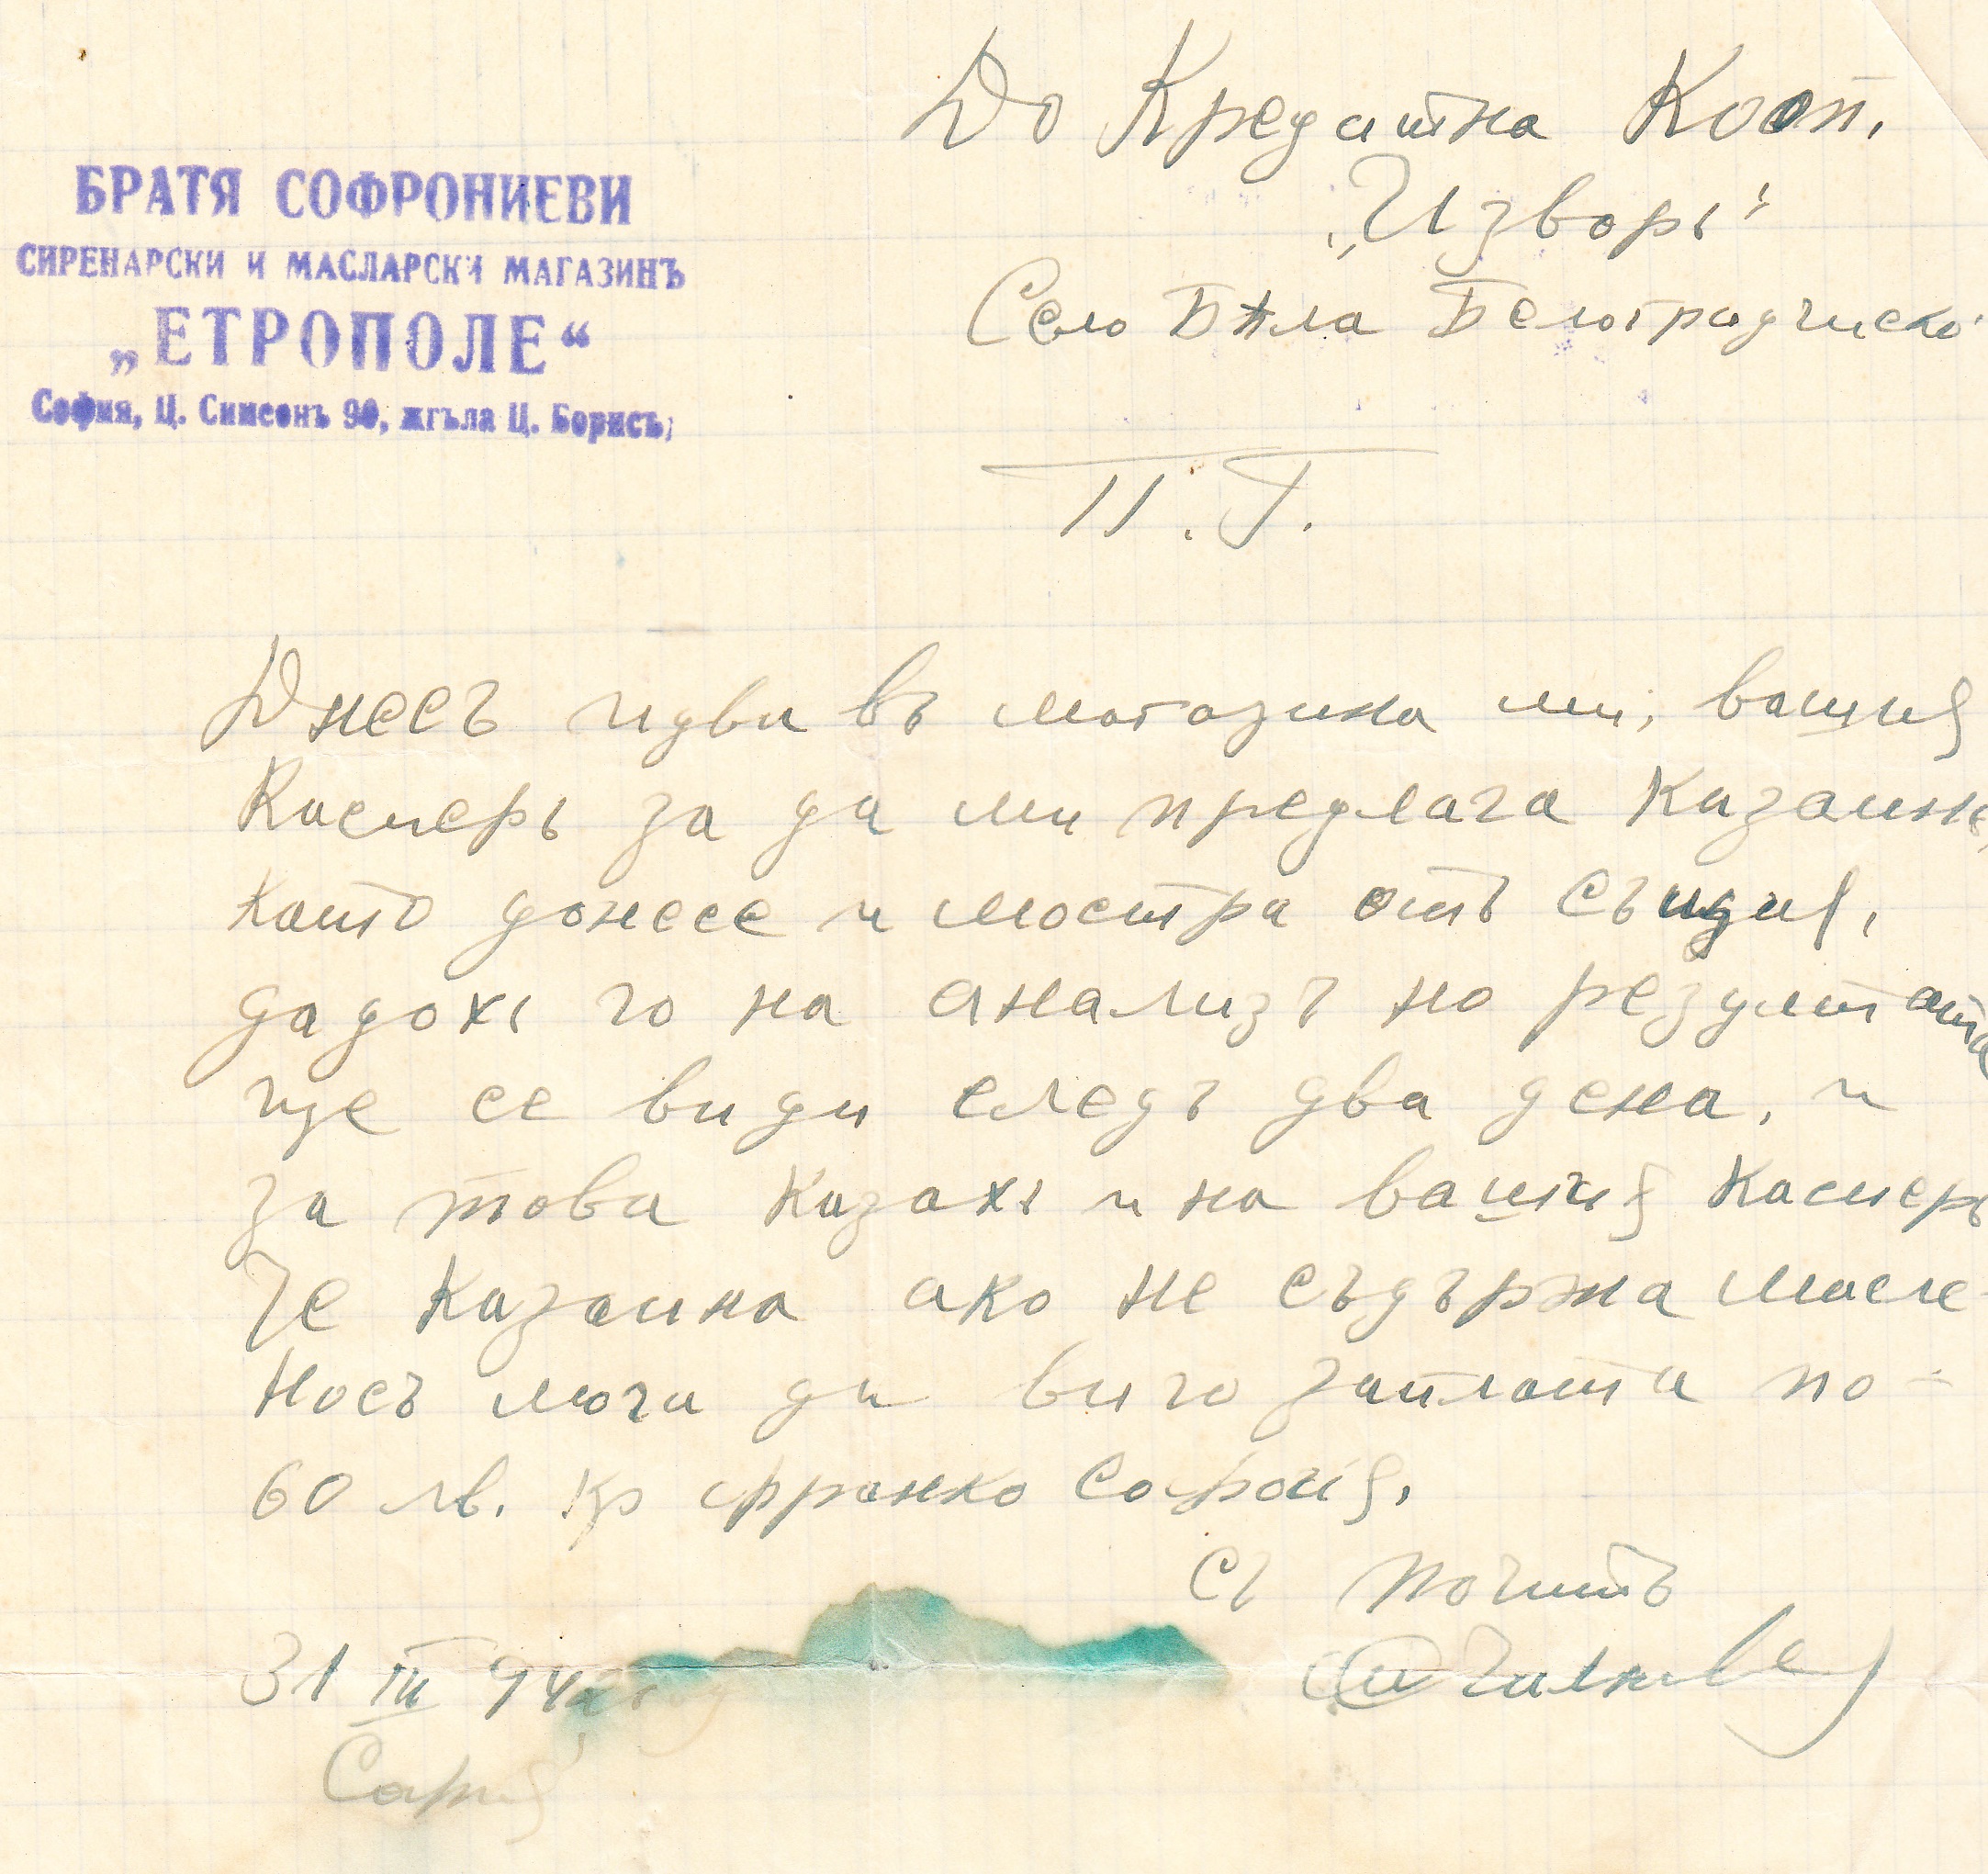 БРАТЯ СОФРОНИЕВИ
СИРЕНАРСКИ И МАСЛАРСКИ МАГАЗИНЪ
„ЕТРОПОЛЕ“
София, Ц. Симеонъ 90, жгъла Ц. Борисъ,
До Кредитна Кооп.
„Изворъ“
Село Бѣла Белоградчиско
П. Г.
Днесъ идва въ магазина ми, вашия
Касиеръ за да ми предлага Казаинъ,
който донесе и мостра отъ същия,
дадохъ го на анализъ но резултата
ще се види следъ два дена, и
за това Казахъ и на вашия Касиеръ
Че Казаина ако не съдържа масле
ность мога да ви го заплатя по-
60 лв. кр франко София.
Съ почитъ
31 III 94
София